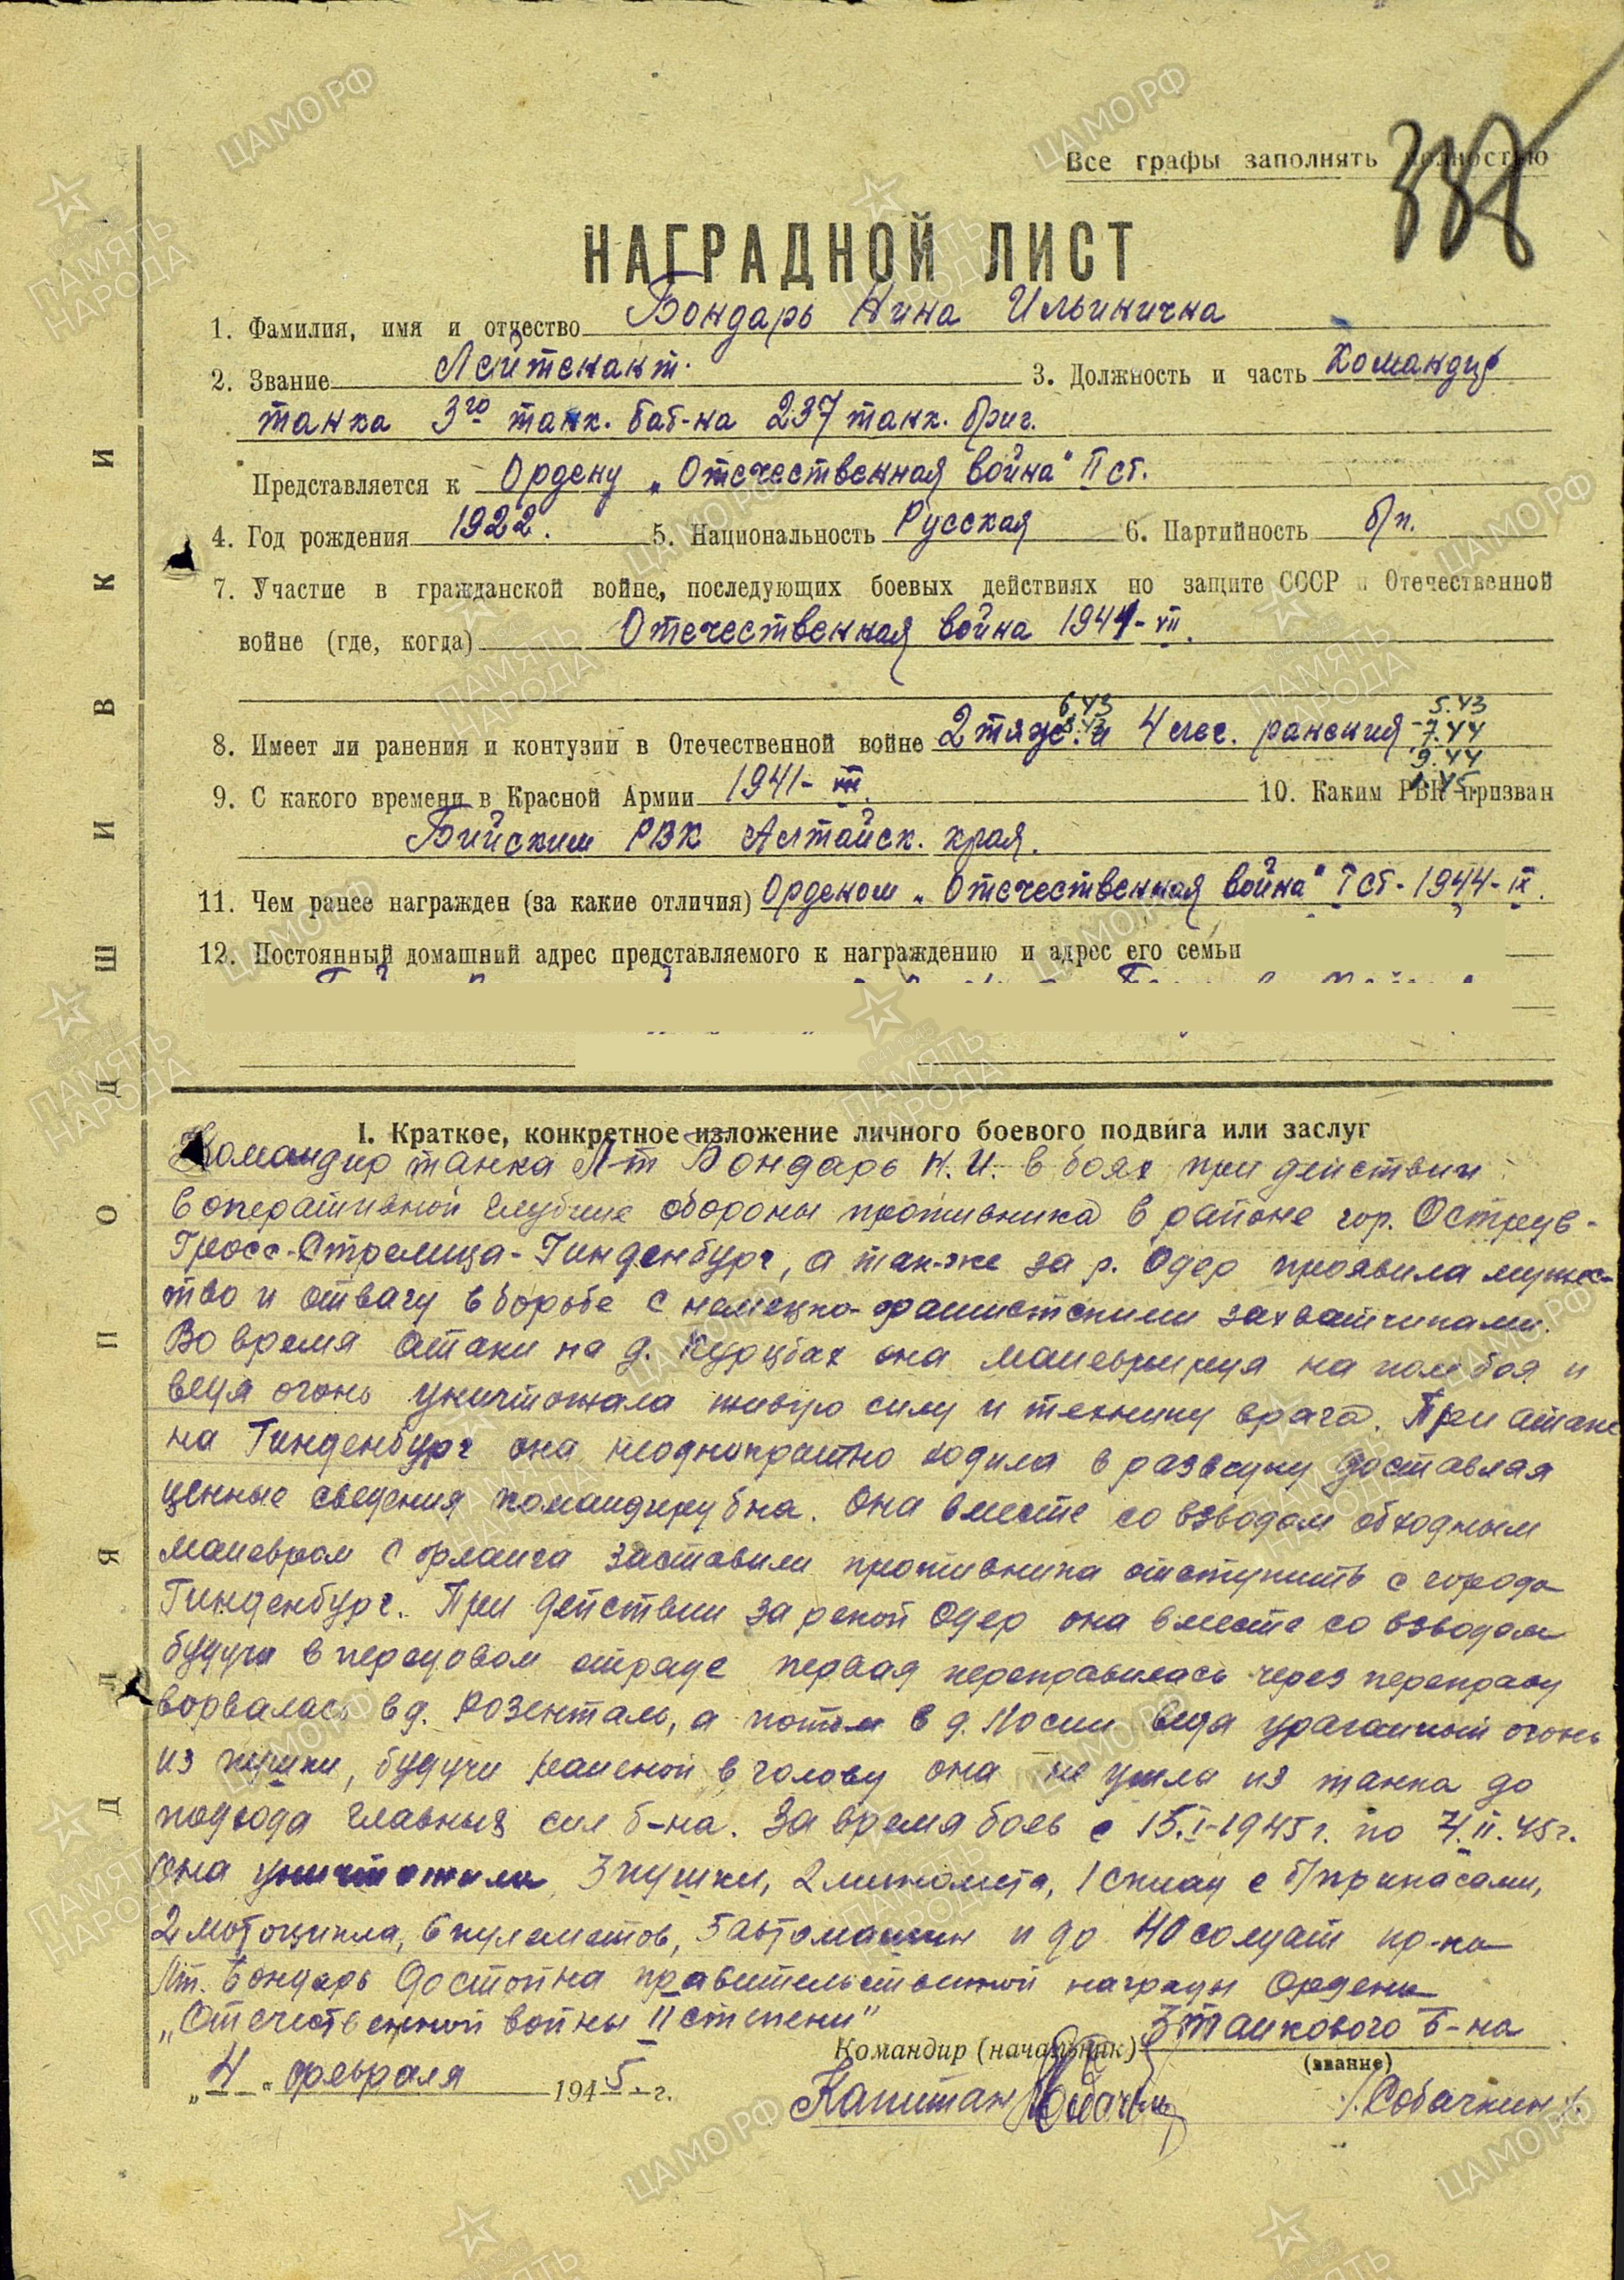 338
Все графы заполнять полностью
НАГРАДНОЙ ЛИСТ
1. Фамилия, имя и отчество Бондарь Нина Ильинична
2. Звание Лейтенант. 3. Должность и часть Командир
танка 3го танк. бат-на 237 танк. бриг.
Представляется к Ордену „Отечественная война" II ст.
4. Год рождения 1922. 5. Национальность Русская 6. Партийность б/п.
7. Участие в гражданской войне, последующих боевых действиях по защите СССР и Отечественной
войне (где, когда) Отечественная война 1941-VII.
6.43 5.43
8.43 7.44
8. Имеет ли ранения и контузии в Отечественной войне 2 тяж. и 4 лег. ранения
9.44
1.45
9. С какого времени в Красной Армии 1941-VII. 10. Каким РВК призван
Бийским РВК Алтайск. края.
11. Чем ранее награжден (за какие отличия) Орденом „Отечественная война" I ст - 1944-IX.
12. Постоянный домашний адрес представляемого к награждению и адрес его семьи
I. Краткое, конкретное изложение личного боевого подвига или заслуг
Командир танка Л-т Бондарь Н.И. в боях при действии
в оперативной глубине обороны противника в районе гор. Острув-
Гросс-Стрелица-Гинденбург, а так-же за р. Одер проявила мужес-
тво и отвагу в борьбе с немецко-фашистскими захватчиками.
Во время атаки на д. Курцбах она маневрируя на поле боя и
ведя огонь уничтожала живую силу и технику врага. При атаке
на Гинденбург она неоднократно ходила в разведку доставляя
ценные сведения командиру бна. Она вместе со взводом обходным
маневром с фланга заставили противника отступить с города
Гинденбург. При действии за рекой Одер она вместе со взводом
будучи в передовом отряде первая переправилась через переправу
ворвалась в д. Розенталь, а потом в д. ведя ураганный огонь
из пушки, будучи раненой в голову она не ушла из танка до
подхода главных сил б-на. За время боев с 15.I-1945г. по 4.II.45г.
она уничтожила 3 пушки, 2 миномета, 1 склад с б/припасами,
2 мотоцикла, 6 пулеметов, 5 автомашин и до 40 солдат пр-ка
Лт. Бондарь достойна правительственной награды Ордена
„Отечественной войны II степени"
Командир (начальник) 3 танкового б-на
(звание)
„4" февраля 1945 г.
Капитан /Собачкин/.
ДЛЯ ПОДШИВКИ
ЦАМО РФ
ПАМЯТЬ НАРОДА